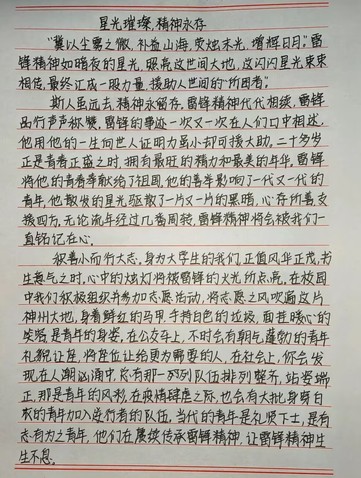 星光璀璨,精神永存
"冀以尘雾之微,补益山海,荧烛末光,增辉日月。"雷
锋精神如暗夜的星光,照亮这世间大地,这闪闪星光束束
相传,最终汇成一股力量,援助人世间的"所困者"。
斯人虽远去,精神永留存,雷锋精神代代相续,雷锋
品行声声称赞,雷锋的事迹一次又一次在人们口中相述,
他用他的一生向世人证明力虽小却可接大助。二十多岁
正是青春正盛之时,拥有最旺的精力和最美的年华,雷锋
将他的青春奉献给了祖国,他的善举影响了一代又一代的
青年,他散发的星光驱散了一片又一片的黑暗,心存所善支
援四方,无论流年经过几番周转,雷锋精神将会被我们一
直铭记在心。
积善小而行大志,身为大学生的我们,正值风华正茂,书
生意气之时,心中的炬灯将被雷锋的火光所点亮,在校园
中我们积极组织并参加志愿活动,将志愿之风吹遍这片
神州大地,身着鲜红的马甲,手持白色的垃圾,面挂暖心的
笑容是青年的身姿,在公交车上,不时会有朝气蓬勃的青年
礼貌让座,将座位让给更为需要的人,在社会上,你会发
现在人潮汹涌中,总有那一列列队伍排列整齐,站姿端
正,那是青年的风彩,在疫情肆虐之际,也会有大批身骑白
衣的青年加入逆行者的队伍,当代的青年是礼贤下士,是有
志有为之青年,他们在赓续传承雷锋精神,让雷锋精神生
生不息。